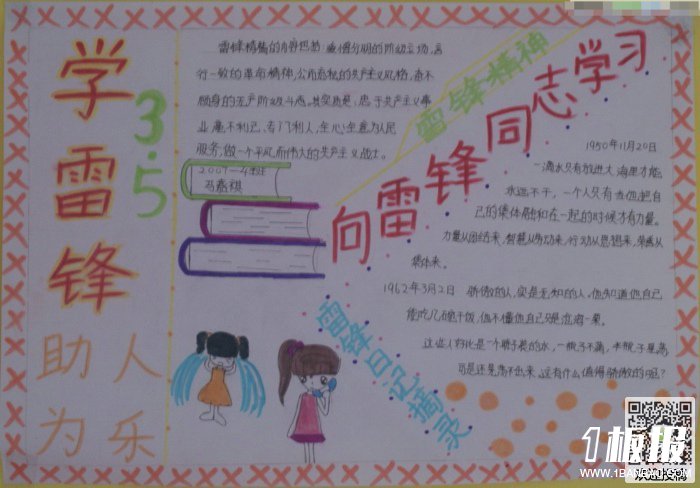 学雷锋
3.5
助人
为乐
雷锋精神的内容包括：爱憎分明的阶级立场，言
行一致的革命精神，公而忘私的共产主义风格，奋不
顾身的无产阶级斗志。其实质是，忠于共产主义事
业，毫不利己，专门利人，全心全意为人民
服务，做一个平凡而伟大的共产主义战士。
雷锋精神
向雷锋同志学习
1950年11月20日
一滴水只有放进大海里才能
永远不干，一个人只有当他把自
己的集体融和在一起的时候才有力量。
力量从团结来，智慧从劳动来，行动从思想来，荣誉从
集体来。
1962年3月2日 骄傲的人，实是无知的人。他不知道他自己
能吃几碗干饭，他不懂他自己只是沧海一粟。
这些人好比是一个瓶子装的水，一瓶子不满，半瓶子晃荡
可是还是晃不出来，这有什么值得骄傲的呢？
雷锋日记摘录
1板报
WWW.1BANBAO.COM
欢迎投稿